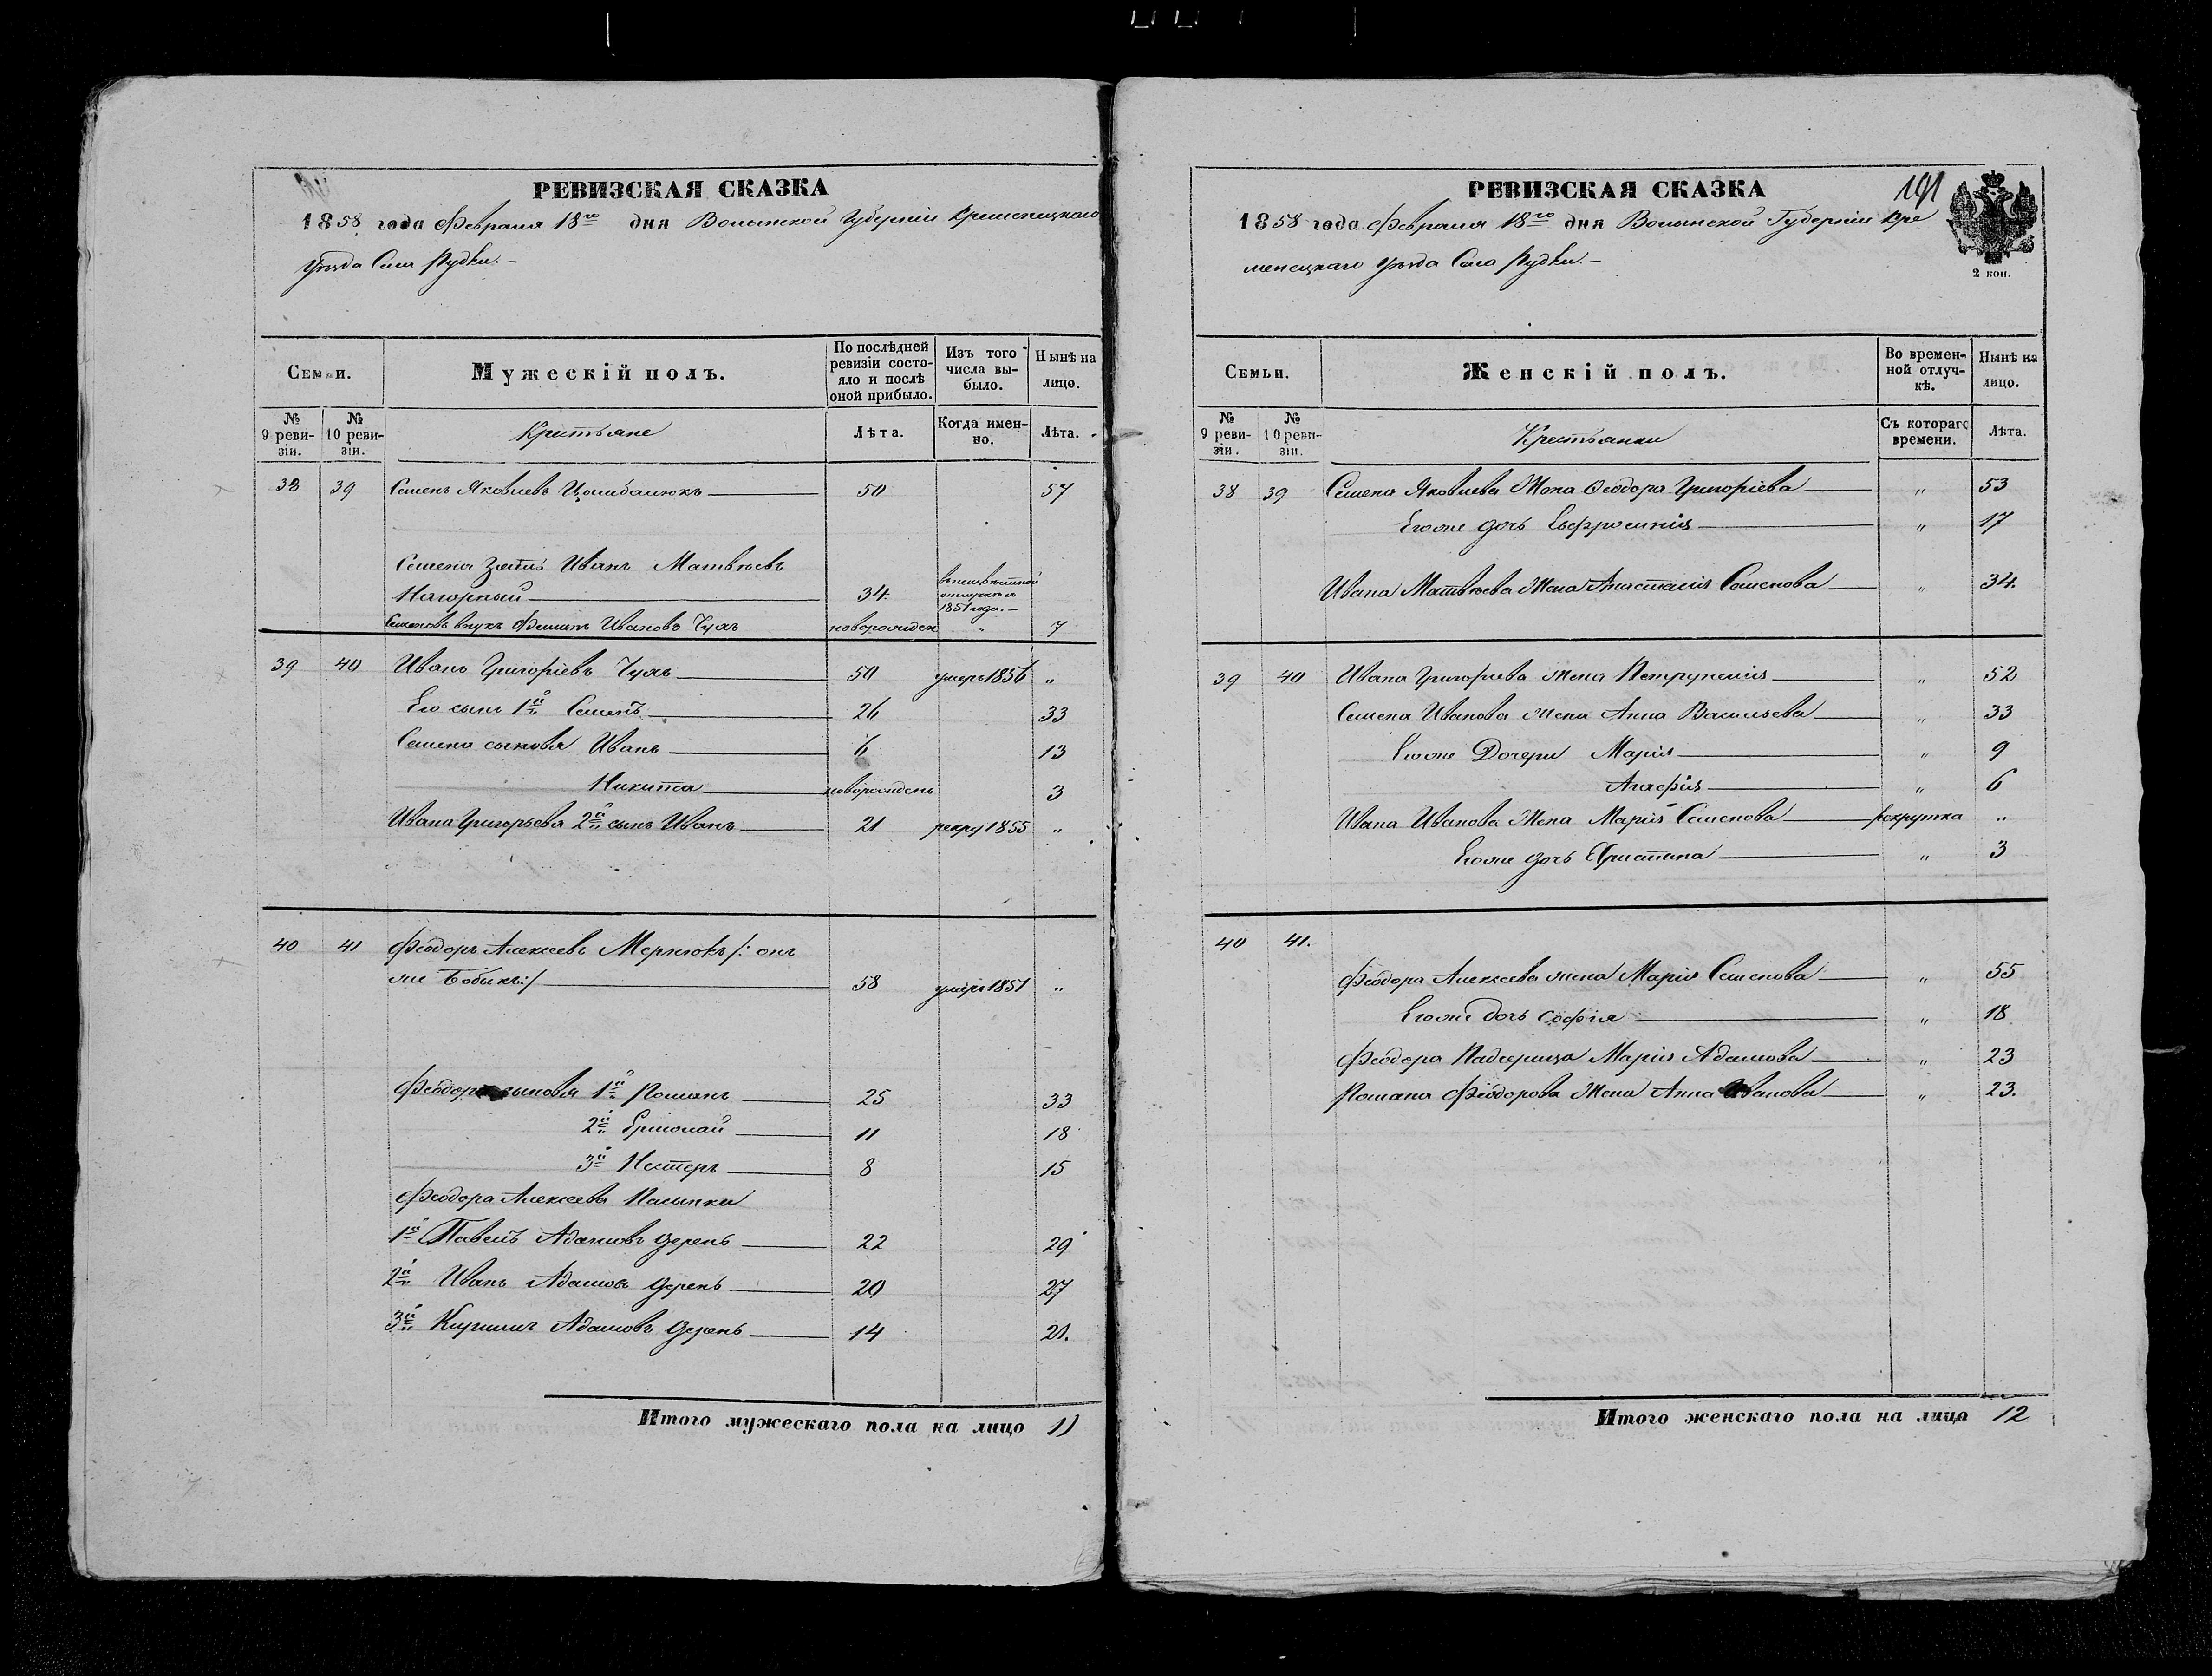 РЕВИЗСКАЯ СКАЗКА
1858 года Февраля 18го дня Волынской Губерніи Кременецкаго
Уѣзда Села Рудки.-
Семьи.
Мужескій полъ.
По послѣдней ревизіи состояло и послѣ оной прибыло.
Изъ того числа выбыло.
Нынѣ на лицо.
№ 9 ревизіи.
№ 10 ревизіи.
Крестьяне
Лѣта.
Когда именно.
Лѣта.
38 39 Семенъ Яковлевъ 50 57
Семена зять Иванъ Матвѣевъ
Нагорный 34. 1851 года.-
Семеновъ внукъ Иванова Чухъ новорожден " 7
39 40 Иванъ Григоріевъ Чухъ 50 умеръ 1856 "
Его сынъ 1й Семенъ 26 33
Семена сыновя Иванъ 6 13
Никита новорожденъ 3
Ивана Григорьева 2й сынъ Иванъ 21 рекру 1855 "
40 41 Феодоръ Алексеевъ Мернюкъ /: онъ
же Бобыкъ:/ 58 умеръ 1851 "
Феодора сыновя 1й Романъ 25 33
2й Ермолай 11 18
3й Нестеръ 8 15
Феодора Алексеева Пасынки
1й Павелъ Адамовъ Дерень 22 29
2й Иванъ Адамовъ Дерень 20 27
3й Кирилъ Адамовъ Дерень 14 21.
Итого мужескаго пола на лицо 11
РЕВИЗСКАЯ СКАЗКА 191
1858 года Февраля 18го дня Волынской Губерніи Кре
менецкаго Уѣзда Села Рудки.-
2 коп.
Семьи.
Женскій полъ.
Во временной отлучкѣ.
Нынѣ на лицо.
№ 9 ревизіи.
№ 10 ревизіи.
Крестьянки
Съ котораго времени.
Лѣта.
38 39 Семена Яковлева Жена Феодора Григоріева " 53
Егоже дочь Евфросинія " 17
Ивана Матвѣева Жена Анастасія Семенова " 34.
39 40 Ивана Григорьева жена Петрунелія " 52
Семена Иванова жена Анна Васильева " 33
Егоже Дочери Марія " 9
Агафія " 6
Ивана Иванова Жена Марія Семенова рекрутка "
Егоже дочь Христина " 3
40 41.
Феодора Алексеева жена Марія Семенова " 55
Егоже дочь Софія " 18
Феодора Падчерица Марія Адамова " 23
Романа Феодорова Жена Анна Иванова " 23.
Итого женскаго пола на лицо 12